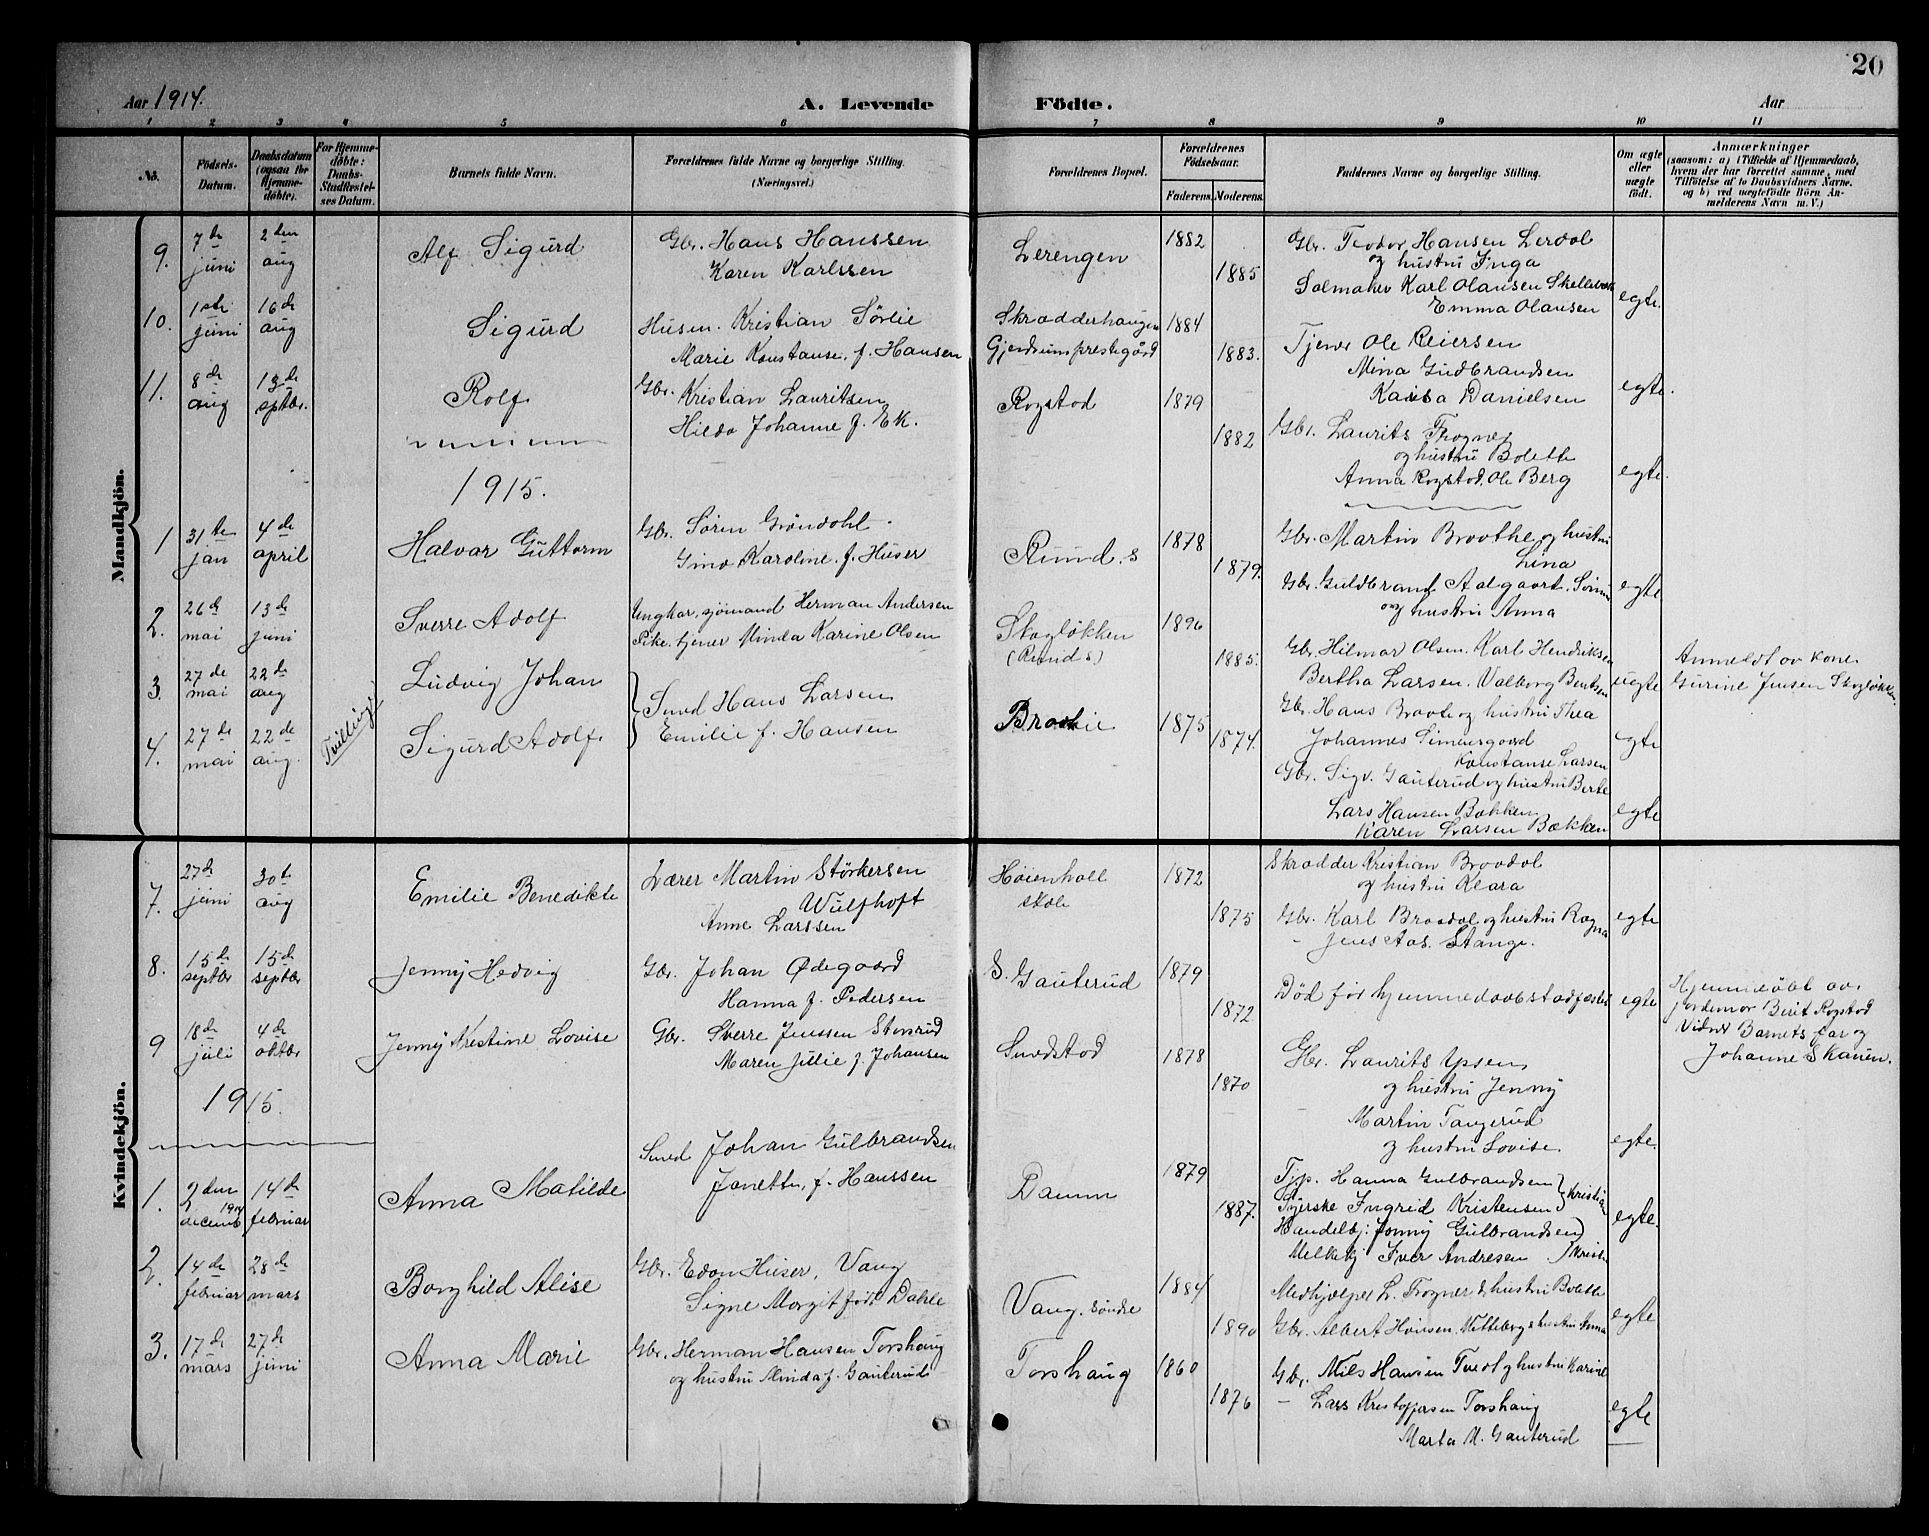 20
Aar 1914.
A. Levende Födte.
Aar
1 2 3 4 5 6 7 8 9 10 11
No.
Födsels-Datum.
Daabsdatum (ogsaa for Hjemme-döbte).
For Hjemme-döbte: Daabs-Stadfæstel-ses Datum.
Barnets fulde Navn.
Forældrenes fulde Navne og borgerlige Stilling. (Næringsvei.)
Forældrenes Bopæl.
Forældrenes Födselsaar.
Faderens. Moderens.
Faddernes Navne og borgerlige Stilling.
Om ægte eller uægte födt.
Anmærkninger
(saasom: a) i Tilfælde af Hjemmedaab, hvem der har forrettet samme, med Tilföielse af to Daabsvidners Navne, og b) ved uægtefödte Börn Anmelderens Navn m. V.)
Mandkjön.
9. 7de juni 2den aug Alf Sigurd Gbr. Hans Hanssen
Karen Karlssen
Lerengen 1882 1885
Gbr. Teodor Hansen Lerdal
og hustru Inga
Salmaker Karl Olausen
Emma Olausen egte.
10. 1ste juni 16de aug Sigurd Husm. Kristian Sørlie
Marie Konstanse f. Hansen
Skrædderhaugen
Gjerdrum prestegård 1884 1883.
Tjener Ole Reiersen
Mina Gudbrandsen
Kaisa Danielsen egte.
11. 8de aug 13de septbr. Rolf Gbr. Kristian Lauritsen
Hilda Johanne f. Ek.
Rogstad 1879 1882
Gbr. Laurits Frogner
og hustru Bolette
Anna Rogstad. Ole Berg egte.
1915.
1 31te jan 4de april Halvar Guttorm Gbr. Søren Grøndahl.
Gina Karoline f. Huser
Ruud. s 1878 1879.
Gbr. Martin Braathe og hustru
Lina
Gbr. Guldbrand Aalgaard,
og hustru Anna egte
2. 26de mai 13de juni Sverre Adolf Ungkar, sjömand Herman Andersen
Pike. tjener Minda Karine Olsen
Skogløkken
(Ruud s) 1896 1885.
Gbr. Hilmar Olsen. Karl Hendriksen
Bertha Larsen. Valborg Bentsen uegte
Anmeldt av kone
Gurine Jensen Skogløkken
3. 27de mai 22de aug Ludvig Johan
4. 27de mai 22de aug. Tvillinge Sigurd Adolf
Smed Hans Larsen
Emilie f. Hansen
1875 1874.
Gbr. Hans Braate og hustru Thea
Johannes Simensgaard
Konstanse Larsen egte
Gbr. Sigv. Gauterud og hustru Berte
Lars Hansen Bækken
Karen Larsen Bækken egte
Kvindekjön.
7. 27de juni 30te aug Emilie Benedikte Lærer Martin Størkersen
Wulfhoft
Anne Larssen
Høienhall
skole 1872 1875
Skrædder Kristian Braadal
og hustru Klara
Gbr. Karl Braadal og hustru Ragna
- Jens Aas. Stange. egte
8. 15de septbr 15de septbr Jenny Hedvig Gbr. Johan Ødegaard
Hanna f. Pedersen
S. Gauterud 1879 1872.
Død før hjemmedaabstadfæstes egte
Hjemmedøbt av
jordemor Berit Rogstad
Vidner Barnets far og
Johanne Skauen.
9 18de juli 4de oktbr Jenny Kristine Lovise Gbr. Sverre Jenssen Storsrud
Maren Julie f. Johansen
Smedstad 1878 1870
Gbr. Laurits Ypsen
og hustru Jenny
Martin Tangerud
og hustru Lovise. egte.
1915.
1. 2den decemb 1914 14de februar Anna Matilde Smed Johan Gulbrandsen
Janette, f. Hanssen
Damm 1879 1887.
Tjp. Hanna Gulbrandsen
Syerske Ingrid Kristensen Kristian
Handelbj: Jonny Gulbrandsen
Melkebj Iver Andresen egte.
2. 14de februar 28de mars Borghild Alise Gbr. Edon Huser, Vang
Signe Margit født Dahle
Vang, søndre 1884 1890
Medhjælper L. Frogner & hustru Bolette
Gbr. Albert Hansen. Vilberg & hustru Anna egte
3. 17de mars 27de juni Anna Marie Gbr. Herman Hansen Torshaug
og hustru Minda f. Gauterud
Torshaug 1860 1876
Gbr. Nils Hansen Tvedt og hustru Karine
- Lars Kristoffersen Torshaug
Marta M. Gauterud egte